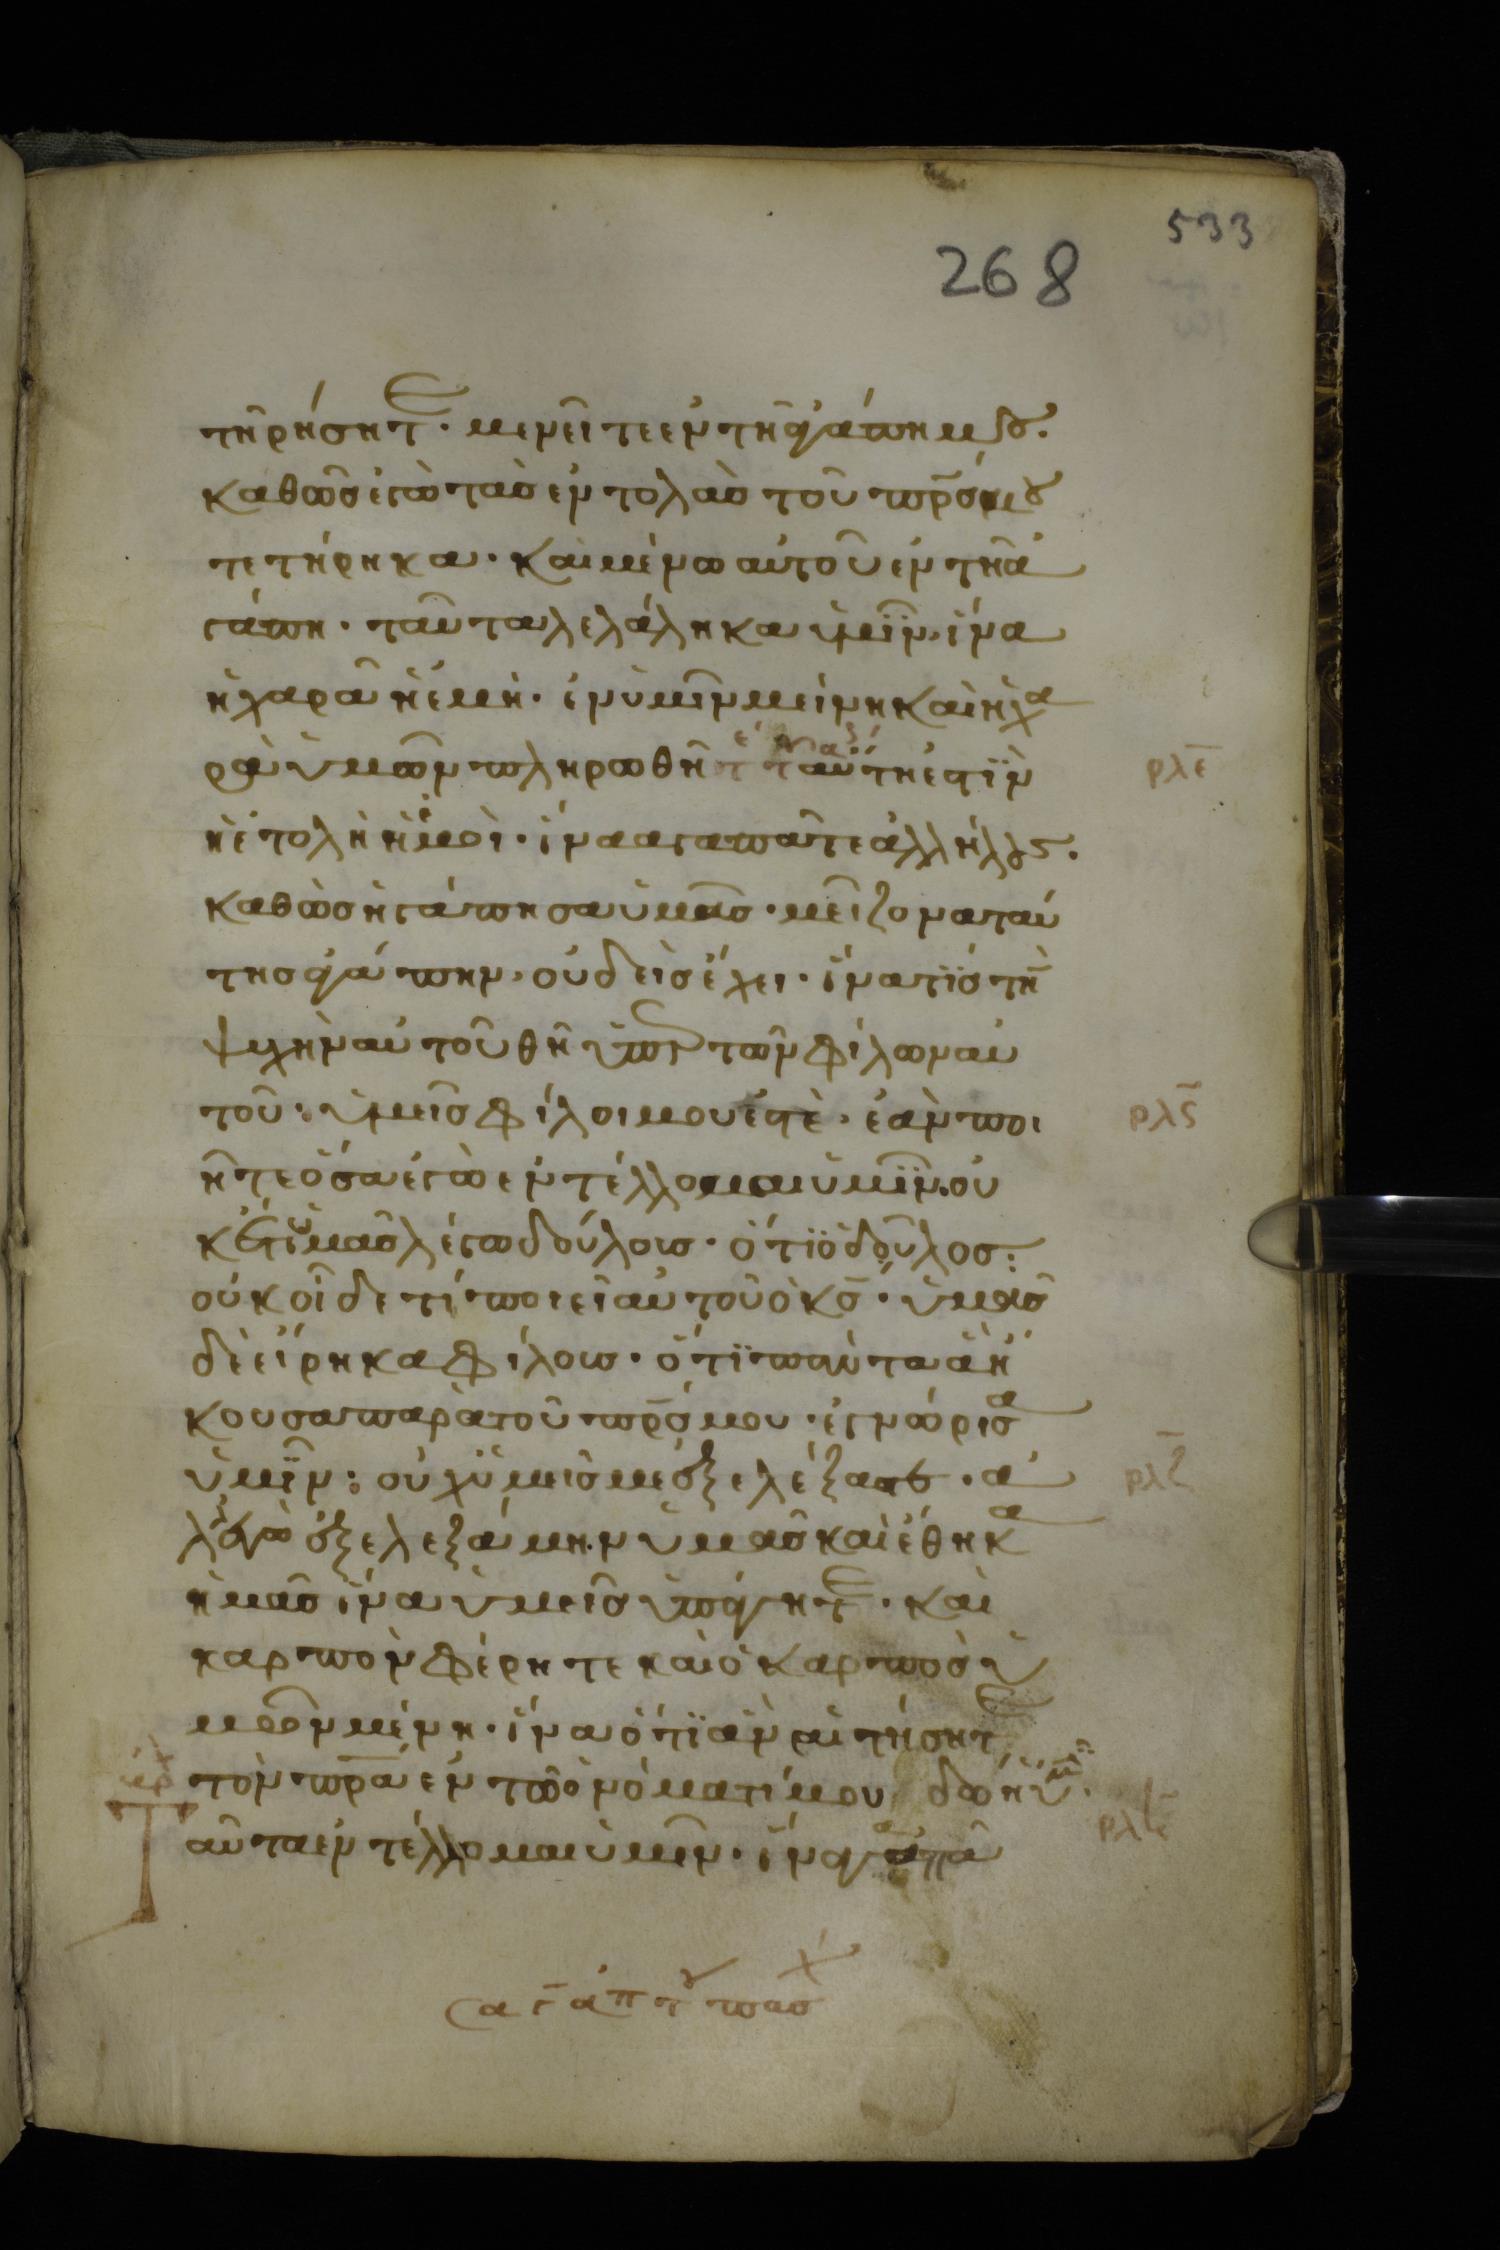 533
268
τηρήσητε · μενεῖτε ἐν τῇ ἀγάπη μου.
καθὼς ἐγὼ τὰσ ἐντολὰσ τοῦ πρ̅σ μου
τετήρηκα · καὶ μένω αὐτοῦ ἐν τῆ ἀ
γάπη · ταῦτα λελάληκα ὑμῖν · ἵνα
ἡ χαρὰ ἡ ἐμὴ · ἐν ὑμῖν μείνη καὶ ἡ χα
ρὰ ὑμῶν πληρωθῆ αὕτη ἐστὶν ρλε
ἡ ἐτολὴ ἡ ἐμοὶ · ἵνα ἀγαπᾶτε ἀλλήλους.
καθὼσ ἠγάπησα ὑμᾶσ · μείζονα ταύ
τησ ἀγάπην · οὐδεὶσ ἔχει · ἵνα τὶσ τὴν
ψυχὴν αὐτοῦ θῆ ὑπὲρ τῶν φίλων αὐ
τοῦ : ὑμεῖσ φίλοι μου ἐστὲ · ἐὰν ποι ρλς
ῆτε ὅσα ἐγὼ ἐντέλλομαι ὑμῖν · οὐ
κέτι ὑμᾶσ λέγω δούλουσ · ὅτι ὁ δοῦλοσ :
οὐκ οἶδε τί ποιεῖ αὐτοῦ ὁ κ̅σ · ὑμᾶσ
δὲ εἴρηκα φίλουσ · ὅτι πάντα ἃ ἤ
κουσα παρὰ τοῦ πρ̅σ μου · ἐγνώρισα
ὑμῖν : οὐχ ὑμεῖσ με ἐξελέξασθε · ἀ ρλζ
λ' ἐγὼ ἐξελεξάμην ὑμᾶσ καὶ ἔθηκα
ἡμᾶσ ἵνα ὑμεῖσ ὑπάγητε · καὶ
καρπὸν φέρητε καὶ ὁ καρπὸσ ὑ
μῶν μένη · ἵνα ὅτι ἂν αἰτήσητε
τὸν πρ̅α ἐν τῶ ὀνόματί μου δώη ὑμῖν.
Ταῦτα ἐντέλλομαι ὑμῖν · ἵνα ἀγαπᾶ